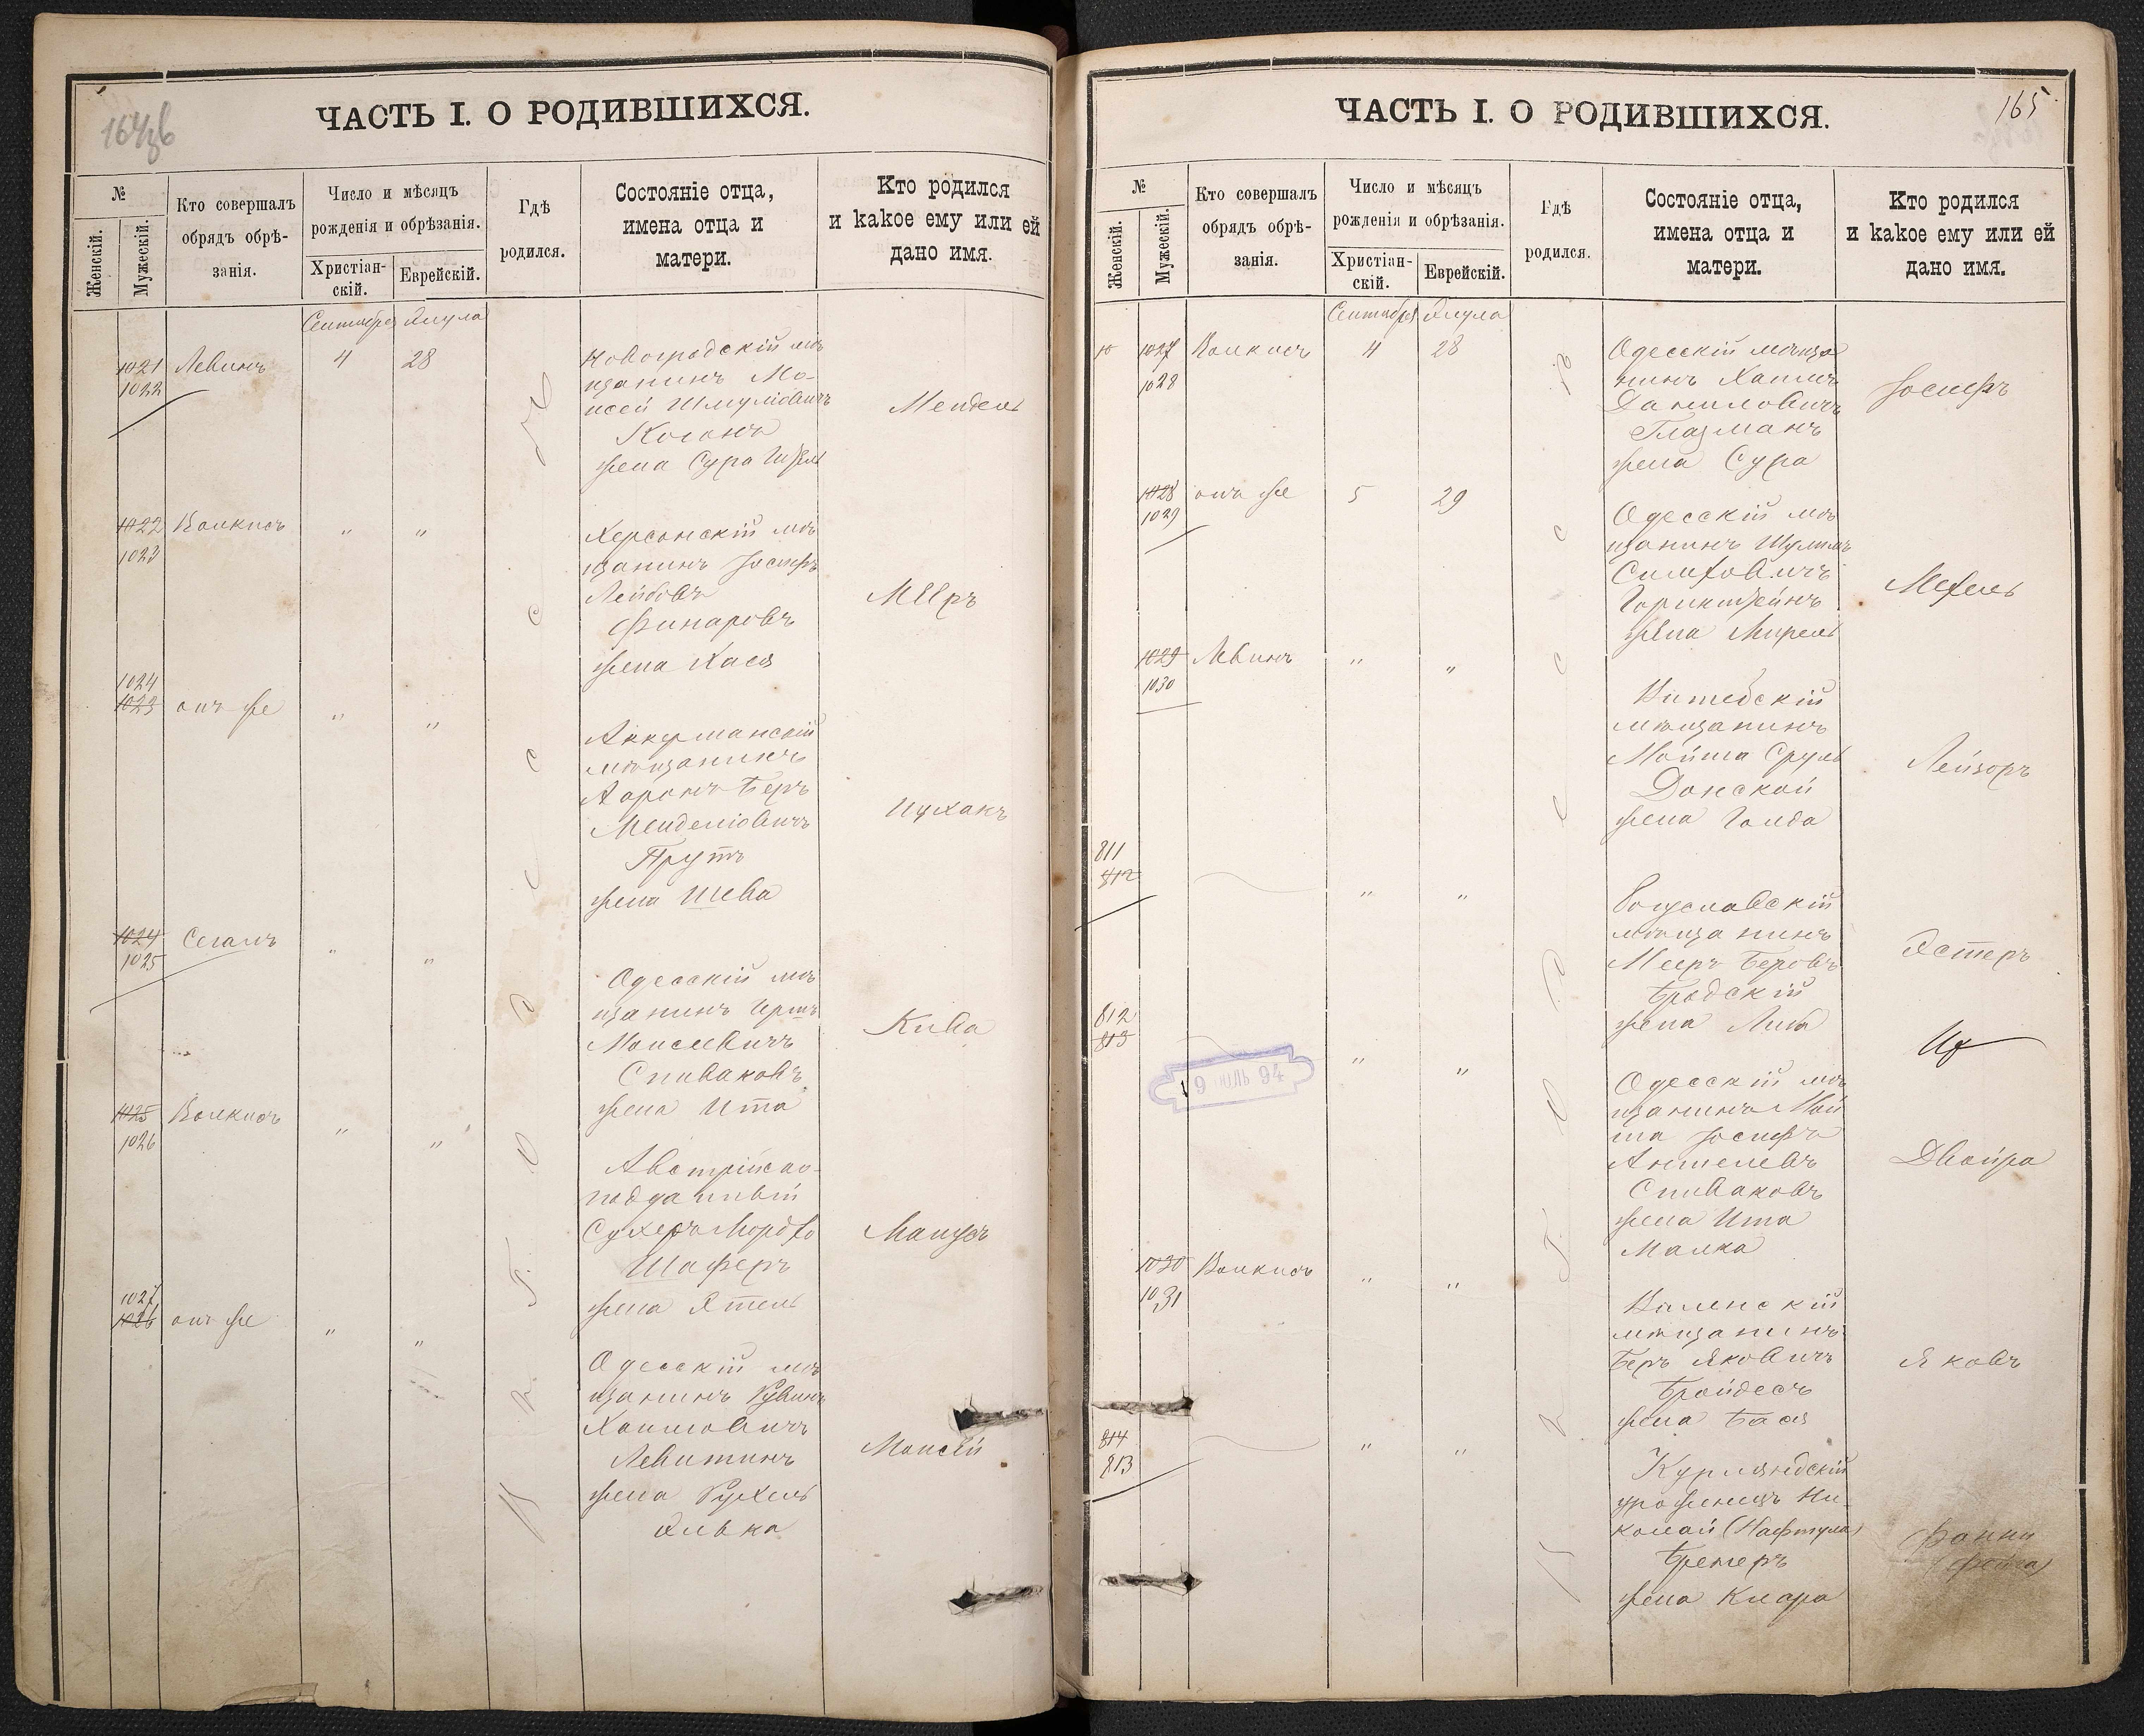 164об
ЧАСТЬ I. О РОДИВШИХСЯ.
№
Женскій.
Мужескій.
Кто совершалъ
обрядъ обрѣ-
занія.
Число и мѣсяцъ
рожденія и обрѣзанія.
Христіан-
скій.
Еврейскій.
Гдѣ
родился.
Состояніе отца,
имена отца и
матери.
Кто родился
и какое ему или ей
дано имя.
Сентября Элула
1021 Левинъ 4 28
1022
Новоградскій мѣ
щанинъ Мо-
исей Шмуліовичъ
Коганъ
жена Сура
Мендель
1022 Волкисъ " "
1023
Херсонскій мѣ
щанинъ Іосифъ
Лейбовъ
Финаровъ
жена Хася
Мееръ
1024
1023 онъ же " "
Аккерманскій
мѣщанинъ
Аронъ Беръ
Менделіовичъ
Прутъ
жена Шева
Ицхакъ
1024 Сегалъ " "
1025
Одесскій мѣ
щанинъ Иршъ
Моисеевичъ
Спиваковъ
жена Ита
Кива
1025 Волкисъ " "
1026
Австрійско-
подданный
Сухеръ Мордко
Шаферъ
жена Этель
Манусъ
1027
1026 онъ же " "
Одесскій мѣ
щанинъ Рувинъ
Хаимовичъ
Левитинъ
жена Рухель
Элька
Моисей
165
ЧАСТЬ I. О РОДИВШИХСЯ.
№
Женскій.
Мужескій.
Кто совершалъ
обрядъ обрѣ-
занія.
Число и мѣсяцъ
рожденія и обрѣзанія.
Христіан-
скій.
Еврейскій.
Гдѣ
родился.
Состояніе отца,
имена отца и
матери.
Кто родился
и какое ему или ей
дано имя.
Сентября Элула
1027 Волкисъ 4 28
1028
Одесскій мѣща
нинъ Хаимъ
Даниловичъ
Глазманъ
жена Сура
Іосифъ
1028 онъ же 5 29
1029
Одесскій мѣ
щанинъ Шулимъ
Симховичъ
Горинштейнъ
жена Мирель
Мехель
1029 Левинъ " "
1030
Витебскій
мѣщанинъ
Мойша Сруль
Донской
жена Голда
Лейзоръ
811
812 " "
Богуславскій
мѣщанинъ
Мееръ Беровъ
Бродскій
жена Либа
Эстеръ
812
813 " "
9 ІЮЛЬ 94
Одесскій мѣ
щанинъ Мой
ша Іосифъ
Аншелевъ
Спиваковъ
жена Ита
Малка
Двойра
1030 Волкисъ " "
1031
Виленскій
мѣщанинъ
Беръ Яковичъ
Бройдесъ
жена Бася
Яковъ
814 " "
813
Курляндскій
уроженецъ Ни-
колай (Нафтула)
Бремеръ
жена Клара
Фанни
(Фейга)